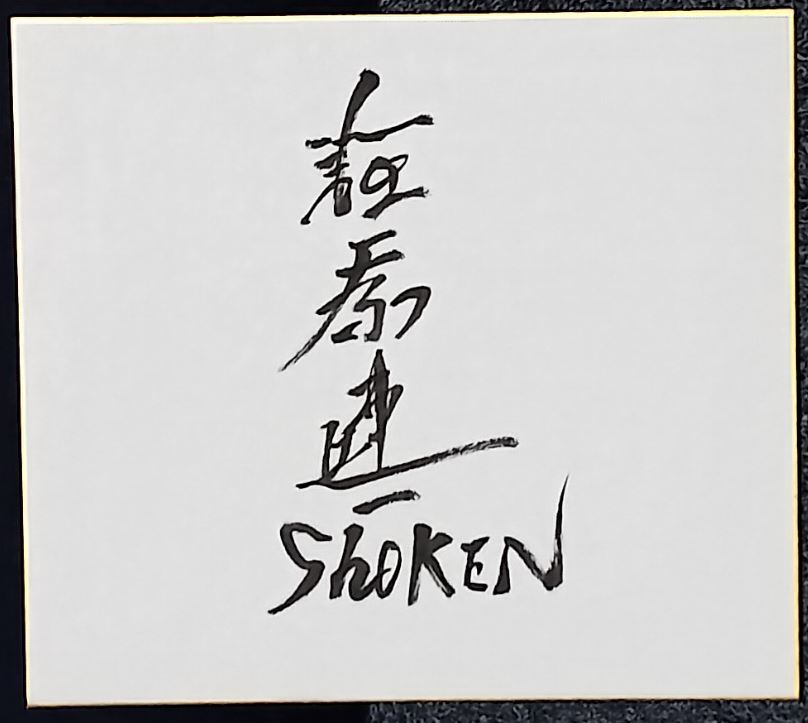 萩原健一
SHOKEN